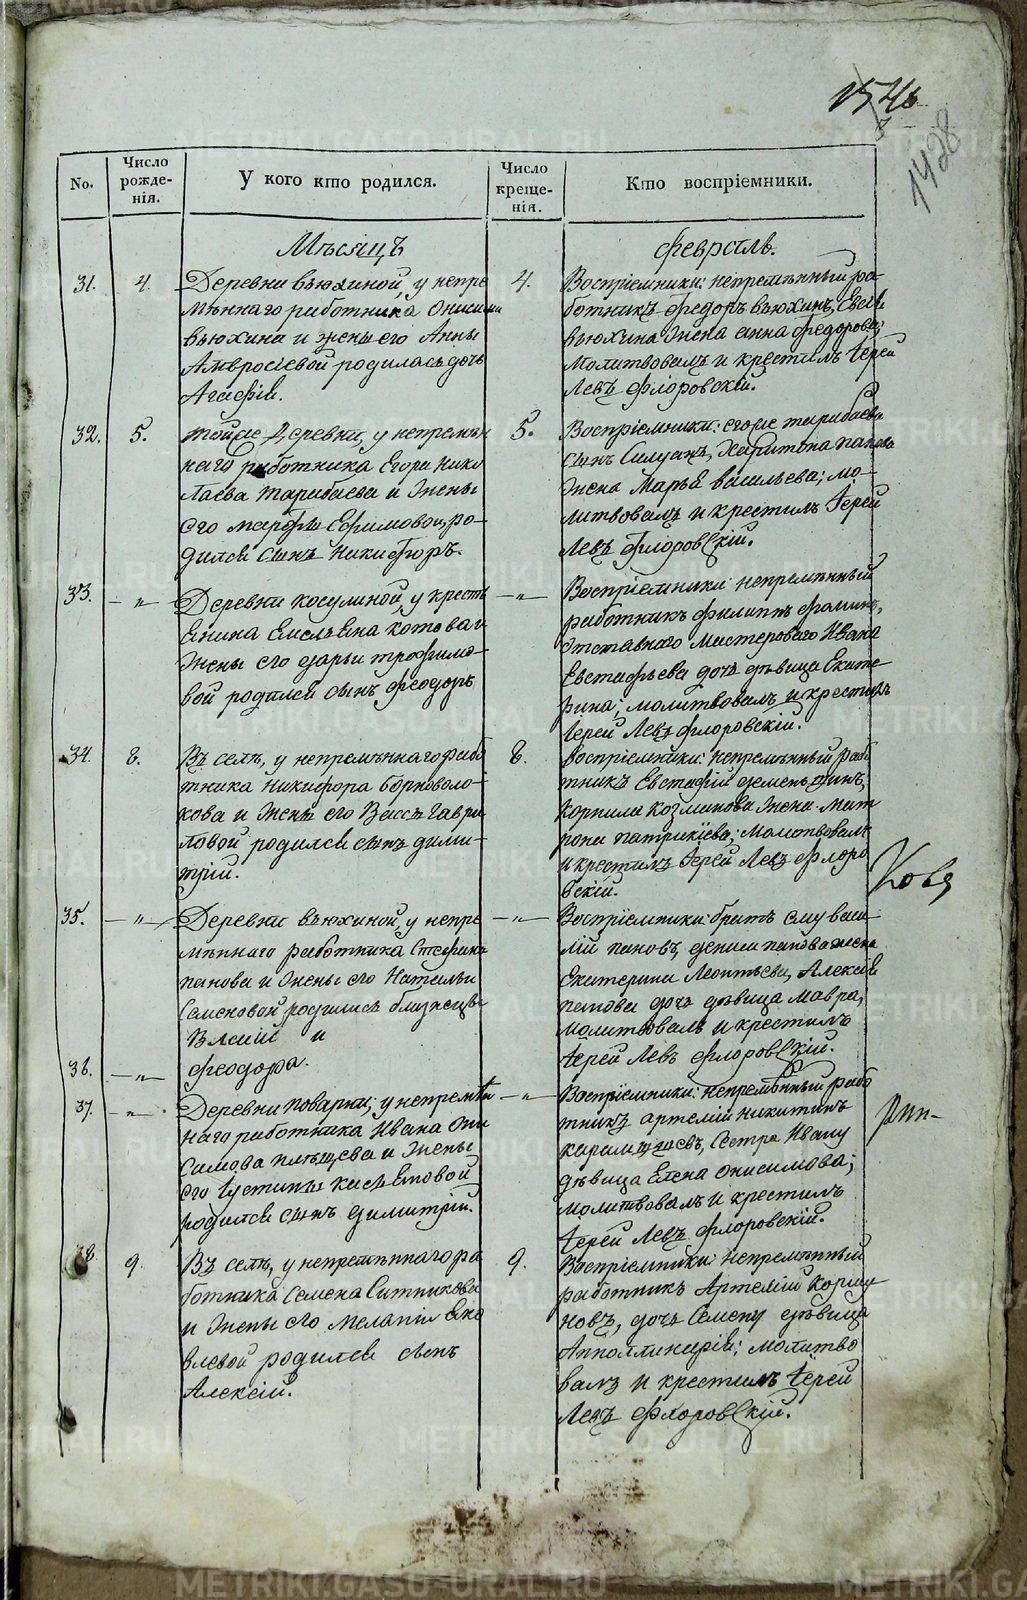 1546
1428
No.
Число рожде-нія.
У кого кто родился.
Число креще-нія.
Кто воспріемники.
Мѣсяцъ
Февраль.
31.
4.
Деревни вьюхиной, у непре
мѣннаго работника Онисима
вьюхина и жены его Анны
Амвросіевой родилась дочь
Агафія.
4.
Воспріемники: непремѣнный ра-
ботникъ федоръ вьюхинъ,
вьюхина жена анна федорова;
Молитвовалъ и крестилъ Іерей
Левъ Флоровскій.
32.
5.
тойже Деревни, у непремѣн
наго работника Егора Нико
лаева тарабаева и Жены
его марфы Ефимовой, ро-
дился сынъ Никифоръ.
5.
Воспріемники: егоже тарабаева
сынъ Силуанъ, Харитона панова
жена Марья васильева; мо-
литвовалъ и крестилъ Іерей
Левъ Флоровскій.
33.
— „ —
Деревни косулиной, у кресть
янина Емельяна котова и
Жены его дарьи трофимо-
вой родился сынъ феодоръ
— „ —
Воспріемники непремѣнный
работникъ филиппъ фоминъ,
отставнаго мастероваго Ивана
Евстафьева дочь дѣвица Екате
рина; молитвовалъ и крестилъ
Іерей Левъ Флоровскій.
34.
8.
Въ селѣ, у непремѣннаго рабо
тника никифора борноволо-
кова и жены его Вассы Гаври
ловой родился сынъ дими-
трій.
8.
воспріемники: непремѣнный рабо
тникъ Евстафій дементьинъ,
корнила козмикова жена мат
рона патрикіева; молитвовалъ
и крестилъ Іерей Левъ Флоро
вскій.
35.
— „ —
Деревни вьюхиной, у непре
мѣннаго работника Стефана
панова и жены его Натальи
Самсоновой родились близнецы
Власій и
— „ —
Воспріемники: братъ ему васи-
лій пановъ, дениса панова жена
Екатерина Леонтьева, Алексія
панова дочь дѣвица мавра,
молитвовалъ и крестилъ
Іерей Левъ Флоровскій.
36.
— „ —
феодора.
37.
— „ —
Деревни поварни; у непремѣн
наго работника Ивана Они
симова и Жены
его Іустины
родился сынъ димитрій.
— „ —
Воспріемники: непремѣнный рабо
тникъ артемій никитинъ
сестра Ивану
дѣвица Елена онисимова;
молитвовалъ и крестилъ
Іерей Левъ Флоровскій.
38.
9.
Въ селѣ, у непремѣннаго ра
ботника Семена Ситникова
и Жены его меланіи Яко
влевой родился сынъ
Алексій.
9.
Воспріемники: непремѣнный
работникъ Артемій коршу
новъ, дочь Семену дѣвица
Апполлинарія; молитво
валъ и крестилъ Іерей
Левъ Флоровскій.
METRIKI.GASO-URAL.RU